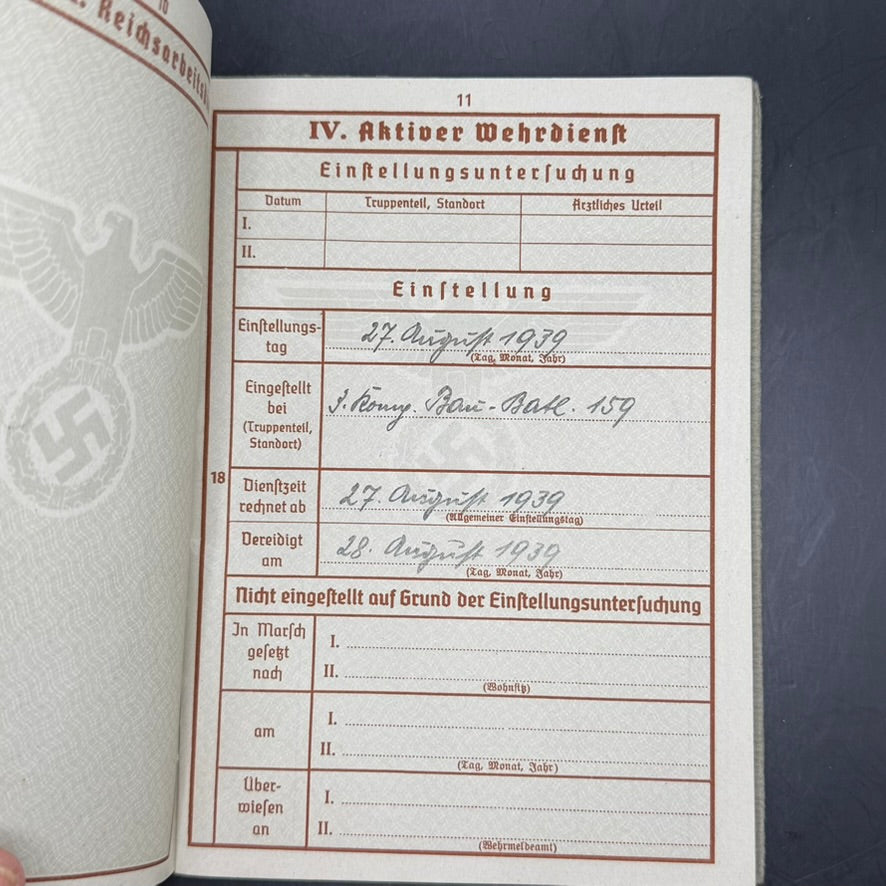 10
Reichsarbeitsd
11
IV. Aktiver Wehrdienst
Einstellungsuntersuchung
Datum Truppenteil, Standort Ärztliches Urteil
I.
II.
Einstellung
Einstellungs-
tag
27. August 1939
(Tag, Monat, Jahr)
Eingestellt
bei
(Truppenteil,
Standort)
3. Komp. Bau-Batl. 159
18
Dienstzeit
rechnet ab
27. August 1939
(Allgemeiner Einstellungstag)
Vereidigt
am
28. August 1939
(Tag, Monat, Jahr)
Nicht eingestellt auf Grund der Einstellungsuntersuchung
In Marsch
gesetzt
nach
I.
II.
(Wohnsitz)
am
I.
II.
(Tag, Monat, Jahr)
Über-
wiesen
an
I.
II.
(Wehrmeldeamt)